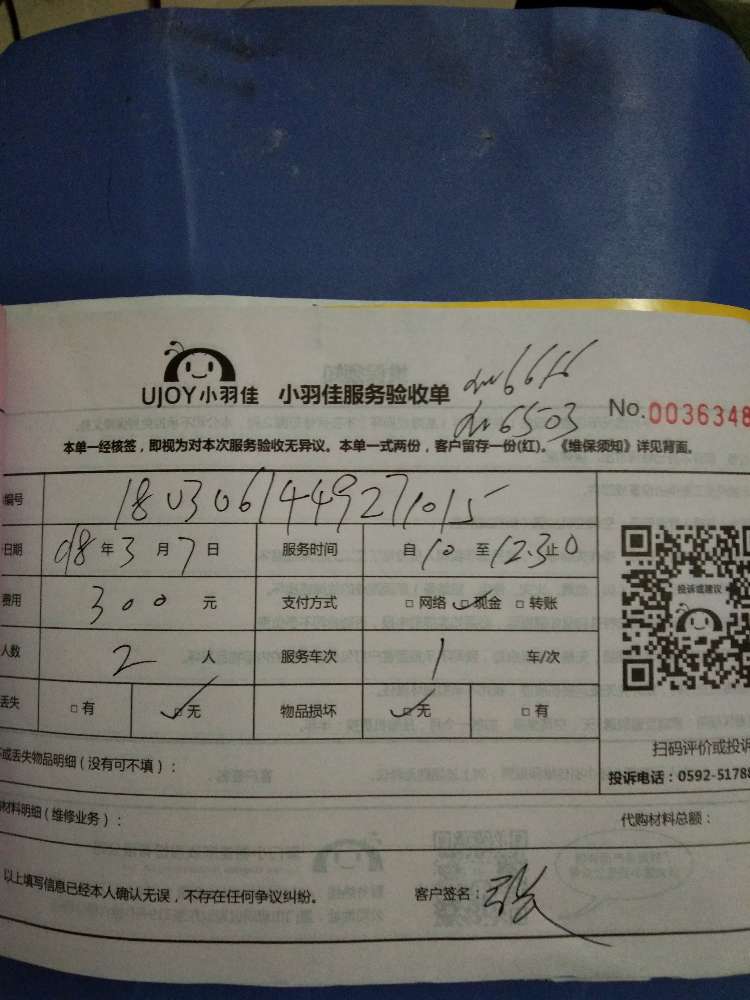 UJOY小羽佳 小羽佳服务验收单 dw6616
dw6503
No.0036348
本单一经核签，即视为对本次服务验收无异议。本单一式两份，客户留存一份(红)。《维保须知》详见背面。
编号 1803061449271015
日期 18年3月7日 服务时间 自10至12:30止
费用 300元 支付方式 □网络 ☑现金 □转账
投诉或建议
人数 2人 服务车次 1 车/次
丢失 □有 ☑无 物品损坏 ☑无 □有
扫码评价或投诉
或丢失物品明细（没有可不填）：
投诉电话：0592-51788
材料明细（维修业务）： 代购材料总额：
以上填写信息已经本人确认无误，不存在任何争议纠纷。 客户签名：张